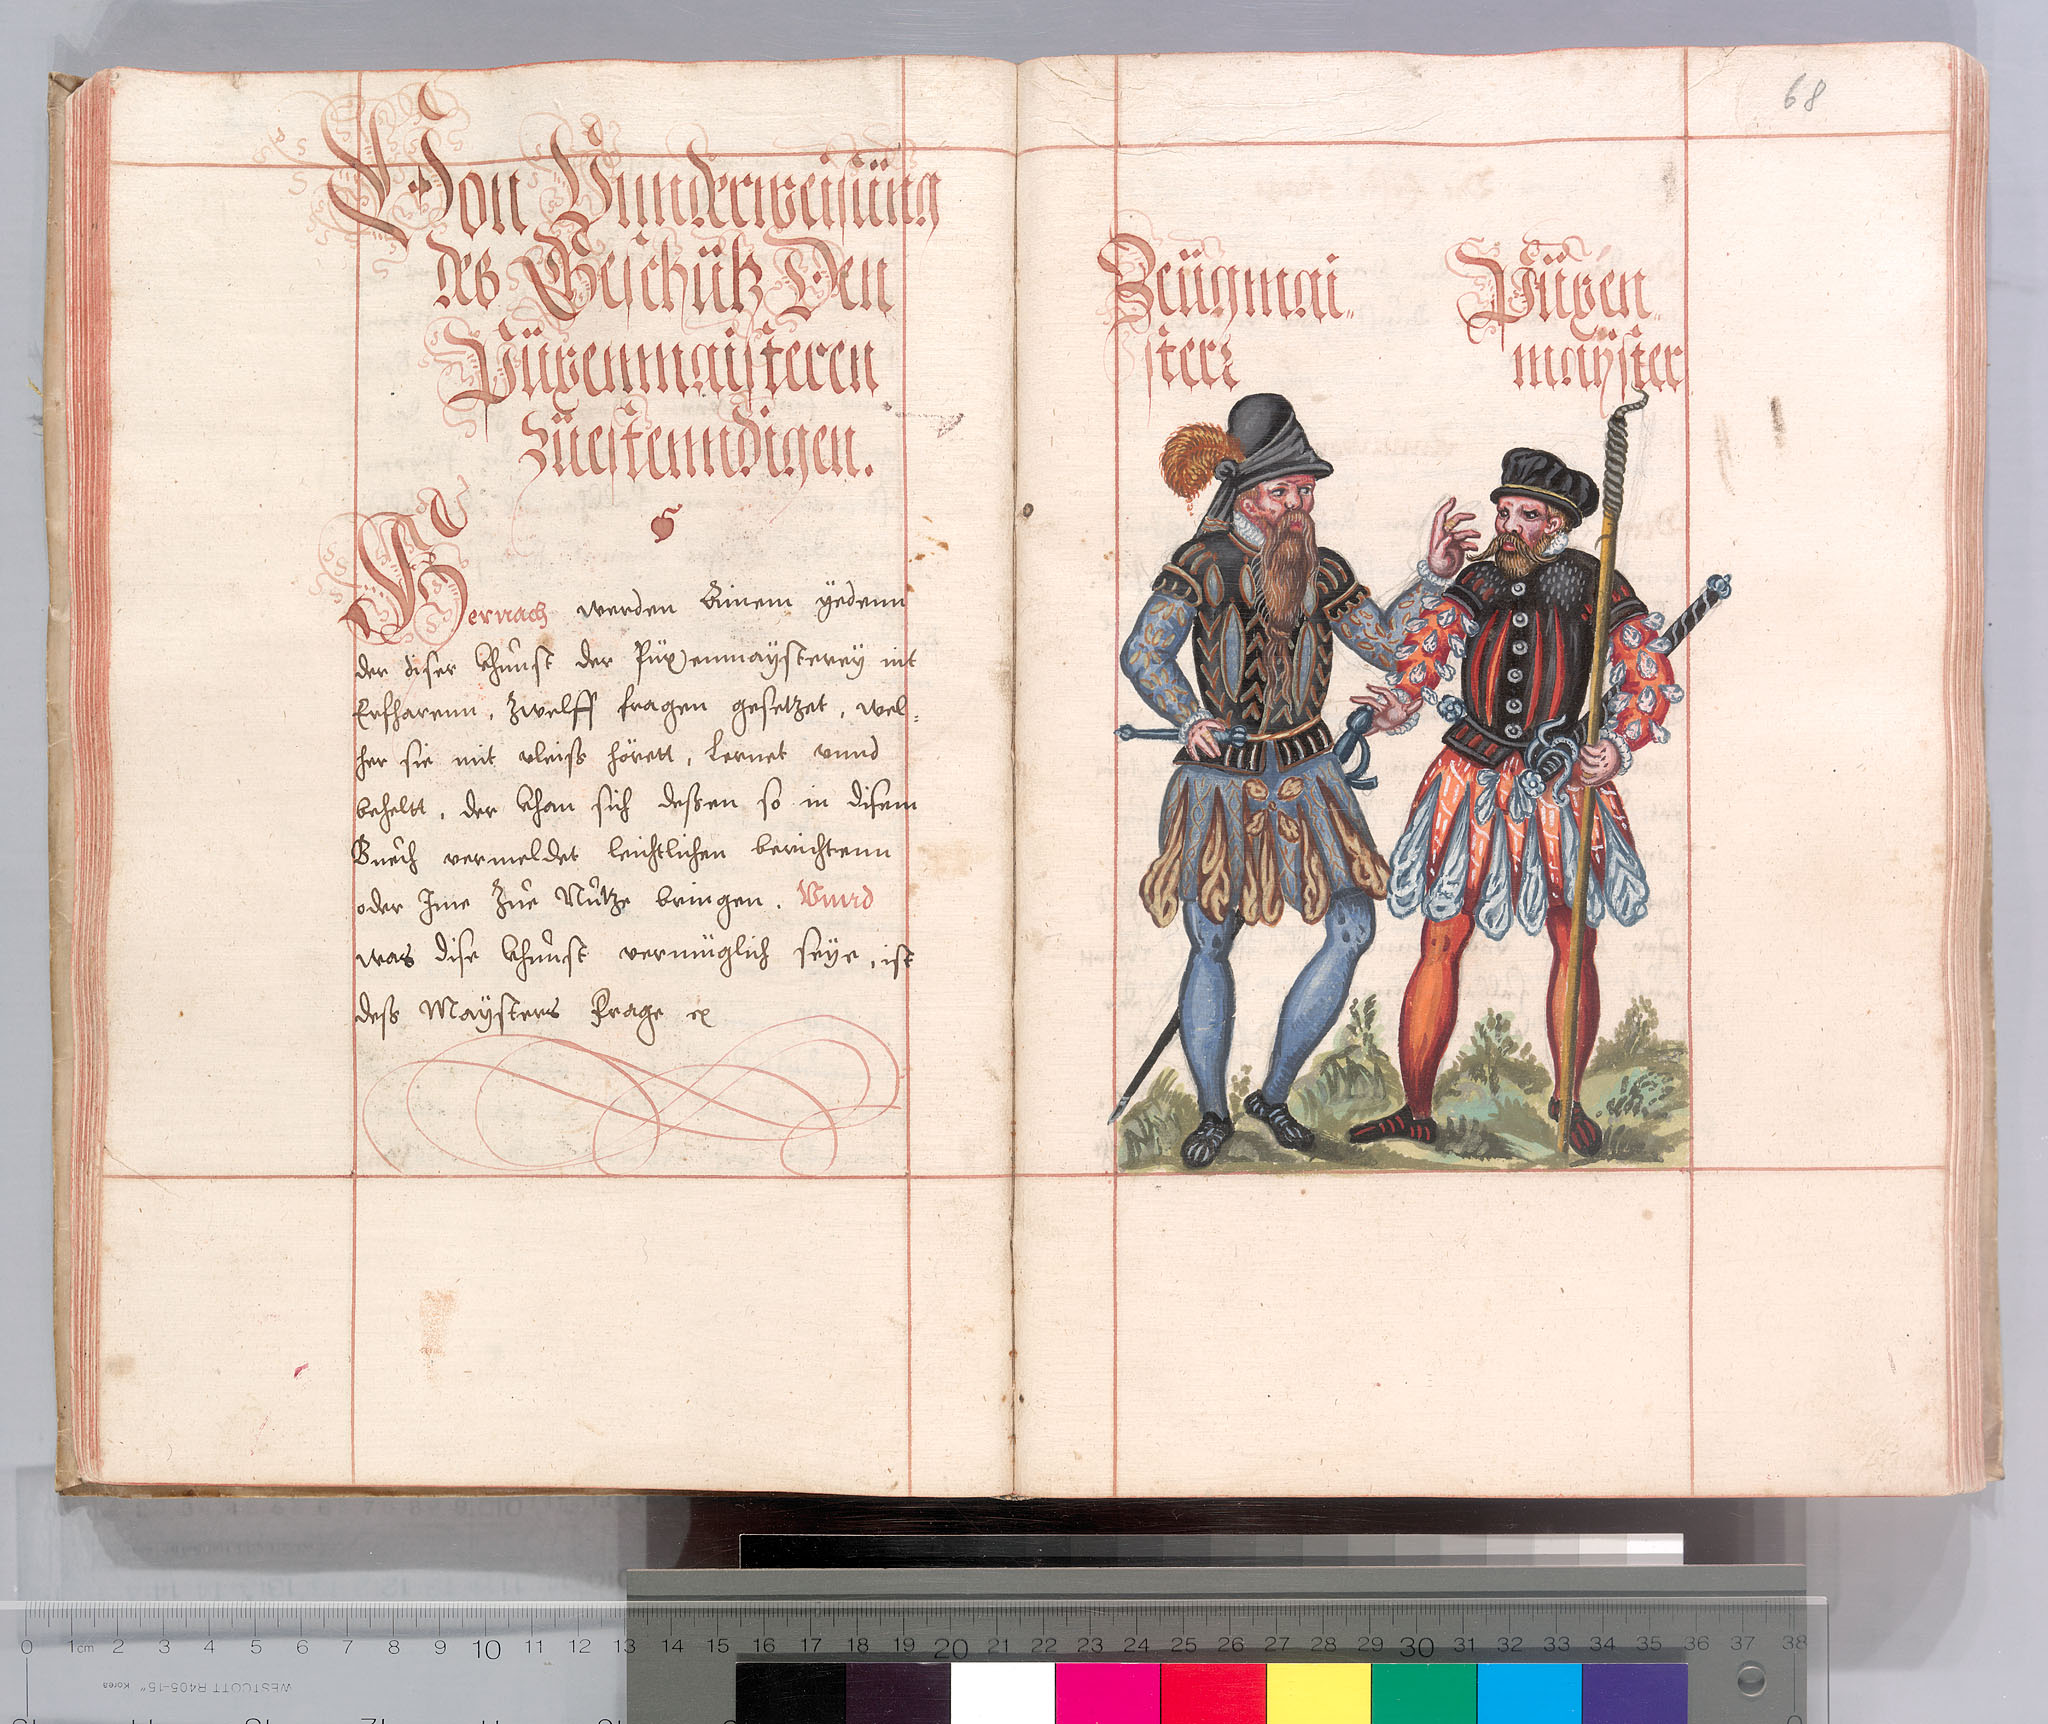 Von Vnnderweisüng
des Geschütz Den
Püxenmaisteren
züestenndigen.
Hernach werden Einem yedenn
der diser khunst der Püxenmaysterey nit
Erfharenn, zwelff fragen gesetzet, wel=
her sie mit vleiß hörett, lernet vnnd
beheltt, der khan sich deßen so in disem
Buech vermeldet leichtlichen berichtenn
oder Ime zue Nutze bringen. Vnnd
was dise khunst vermüglich seÿe, ist
deß Maÿsters Frage
68
Zeügmai=
ster
Püxen=
maÿster
0 1cm 2 3 4 5 6 7 8 9 10 11 12 13 14 15 16 17 18 19 20 21 22 23 24 25 26 27 28 29 30 31 32 33 34 35 36 37 38
WESTCOTT R405-15" Korea